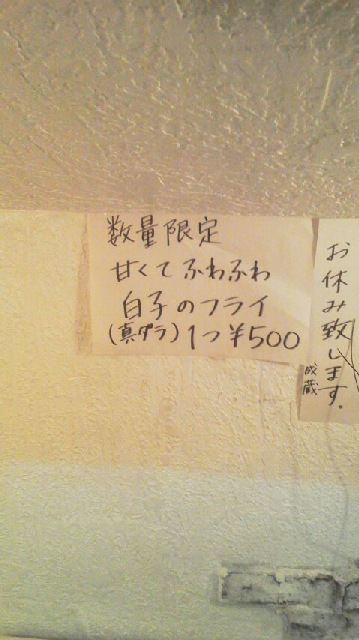 数量限定
甘くてふわふわ
白子のフライ
(真ダラ)1つ¥500
お休み致します。
成蔵